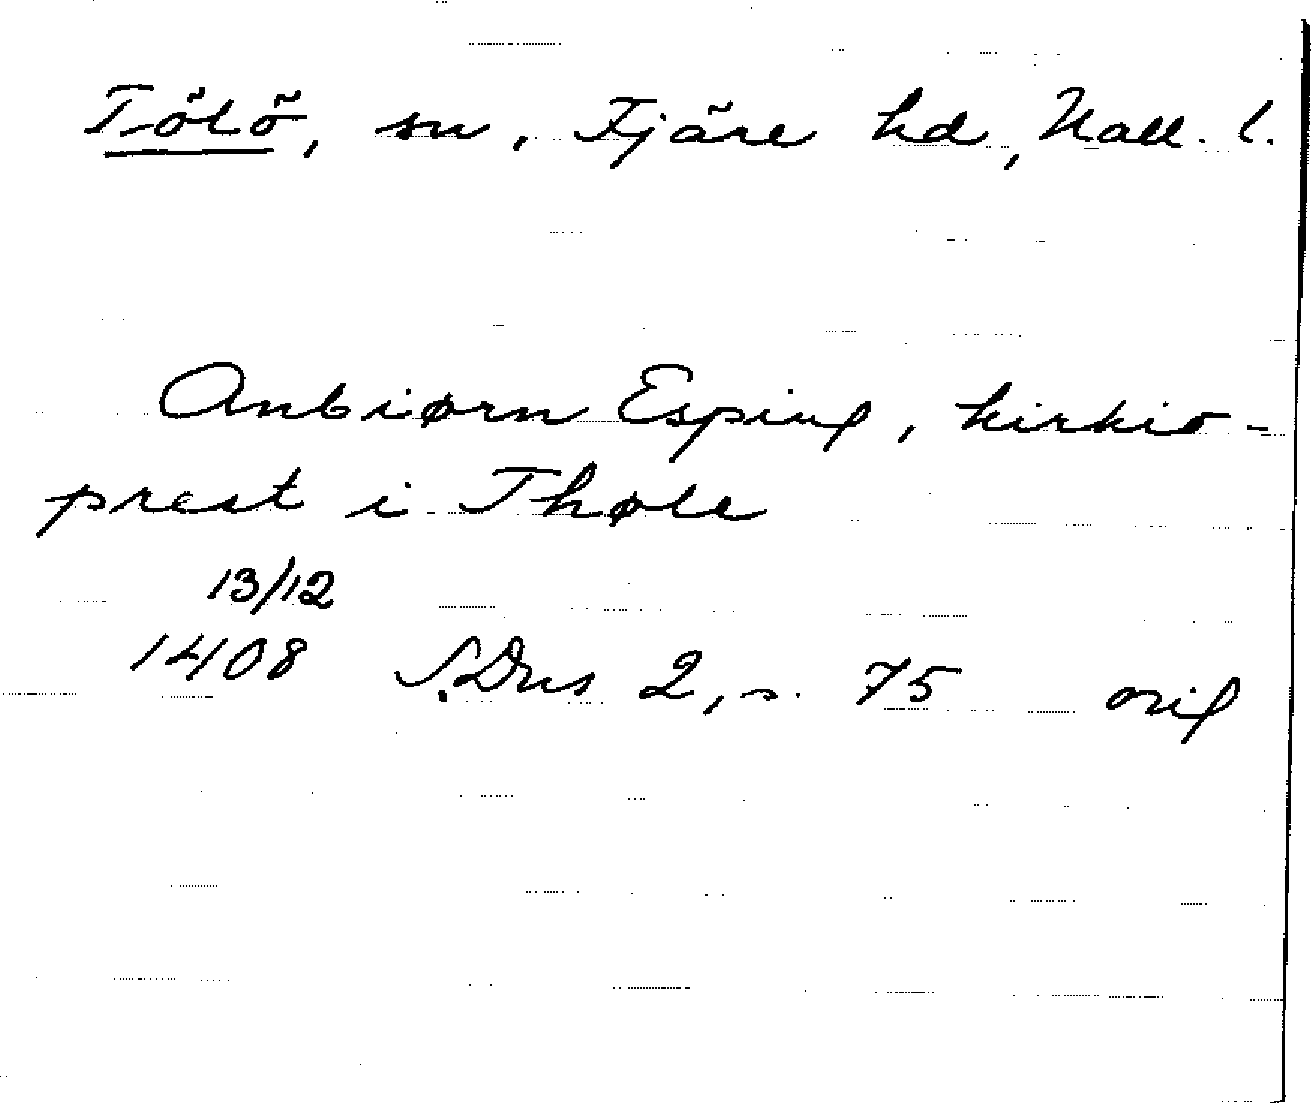 Tölö, sn, Fjäre hd, Hall. l.
Anbiørn Esping, kirkio-
prest i Thøle
13/12
1408 S.Dns 2, s. 75 orig